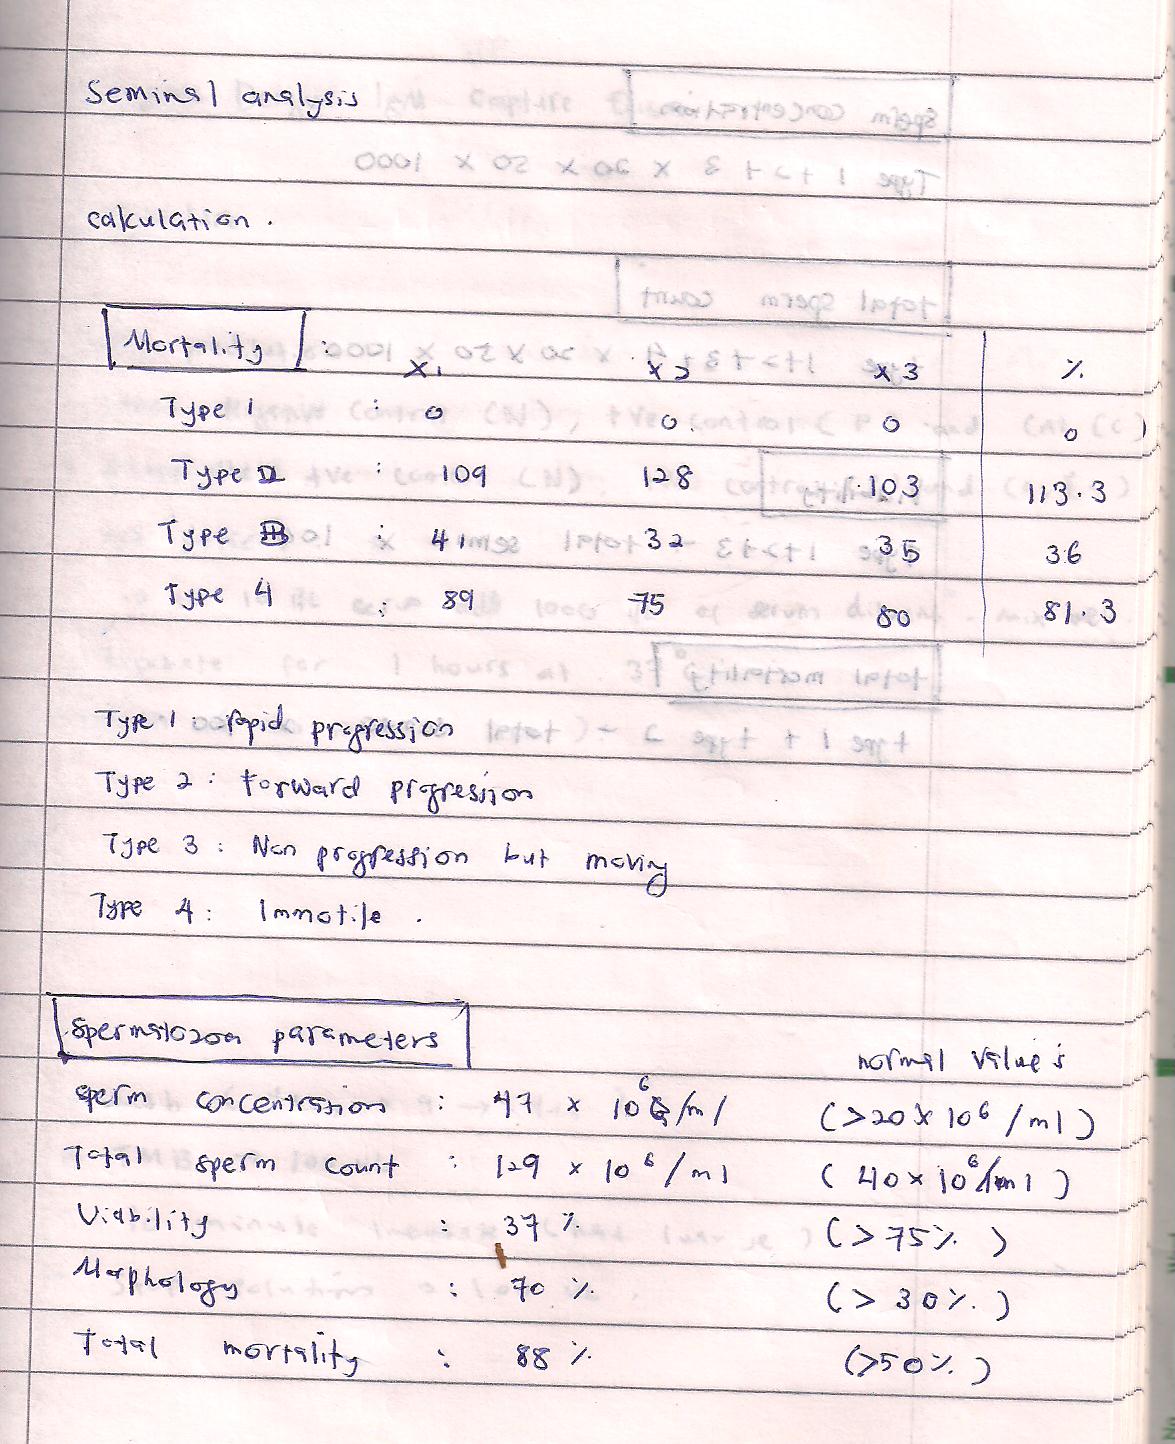 Seminal analysis
calculation.
Mortality :
x1 x2 x3 %
Type 1 : 0 0. 0 0
Type II : 109 128 103 113.3
Type III : 41 32 35 36
Type 4 : 89 75 80 81.3
Type 1 : Rapid progression
Type 2 : forward progression
Type 3 : Non progression but moving
Type 4 : Immotile .
Spermatozoa parameters
normal value's
sperm concentration : 47 x 10⁶/ml (>20x10⁶/ml)
Total sperm count : 129 x 10⁶/ml (40x10⁶/ml)
Viability : 37 % (>75%)
Morphology : 70 % (>30%)
Total mortality : 88 % (>50%)